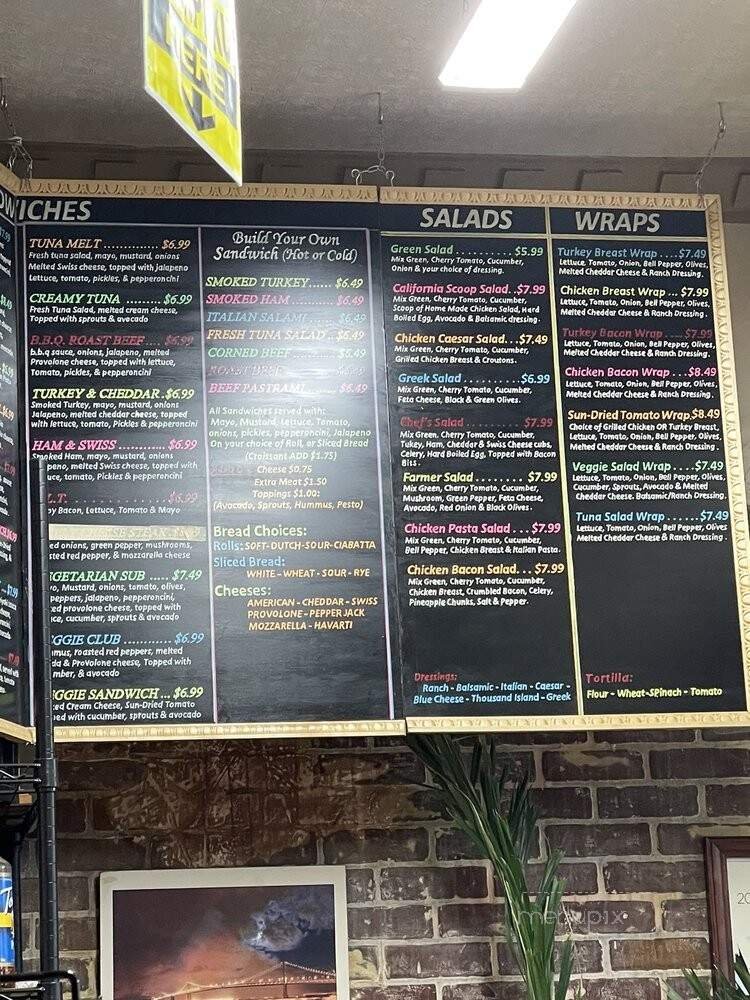 HERE
WICHES
TUNA MELT ............. $6.99
Fresh tuna salad, mayo, mustard, onions
Melted Swiss cheese, topped with jalapeno
Lettuce, tomato, pickles, & pepperoncini
CREAMY TUNA ......... $6.99
Fresh Tuna Salad, melted cream cheese,
Topped with sprouts & avocado
B.B.Q. ROAST BEEF ... $6.99
b.b.q sauce, onions, jalapeno, melted
Provolone cheese, topped with lettuce,
Tomato, pickles, & pepperoncini
TURKEY & CHEDDAR .$6.99
Smoked Turkey, mayo, mustard, onions
Jalapeno, melted cheddar cheese, topped
with lettuce, tomato, Pickles & pepperoncini
HAM & SWISS ............ $6.99
Smoked Ham, mayo, mustard, onions
peno, melted Swiss cheese, topped with
uce, tomato, Pickles & pepperoncini
L.T. ................... $6.99
py Bacon, Lettuce, Tomato & Mayo
ESE STEAK
ed onions, green pepper, mushrooms,
sted red pepper, & mozzarella cheese
GETARIAN SUB ..... $7.49
o, Mustard, onions, tomato, olives,
peppers, jalapeno, pepperoncini,
ced provolone cheese, topped with
ce, cucumber, sprouts & avocado
GGIE CLUB ........... $6.99
mus, roasted red peppers, melted
da & Provolone cheese, Topped with
mber, & avocado
GGIE SANDWICH ... $6.99
ced Cream Cheese, Sun-Dried Tomato
ed with cucumber, sprouts & avocado
Build Your Own
Sandwich (Hot or Cold)
SMOKED TURKEY...... $6.49
SMOKED HAM ........... $6.49
ITALIAN SALAMI ....... $6.49
FRESH TUNA SALAD .. $6.49
CORNED BEEF ........... $6.49
ROAST BEEF ............. $6.49
BEEF PASTRAMI ........ $6.49
All Sandwiches served with:
Mayo, Mustard, Lettuce, Tomato,
onions, pickles, pepperonchini, Jalapeno
On your choice of Roll, or Sliced Bread
(Croissant ADD $1.75)
Cheese $0.75
Extra Meat $1.50
Toppings $1.00:
(Avocado, Sprouts, Hummus, Pesto)
Bread Choices:
Rolls: SOFT-DUTCH-SOUR-CIABATTA
Sliced Bread:
WHITE - WHEAT - SOUR - RYE
Cheeses:
AMERICAN - CHEDDAR - SWISS
PROVOLONE - PEPPER JACK
MOZZARELLA - HAVARTI
SALADS
Green Salad .......... $5.99
Mix Green, Cherry Tomato, Cucumber,
Onion & your choice of dressing.
California Scoop Salad. .$7.99
Mix Green, Cherry Tomato, Cucumber,
Scoop of Home Made Chicken Salad, Hard
Boiled Egg, Avocado & Balsamic dressing.
Chicken Caesar Salad...$7.49
Mix Green, Cherry Tomato, Cucumber,
Grilled Chicken Breast & Croutons.
Greek Salad ......... $6.99
Mix Green, Cherry Tomato, Cucumber,
Feta Cheese, Black & Green Olives.
Chef's Salad ......... $7.99
Mix Green, Cherry Tomato, Cucumber,
Tukey, Ham, Chedder & Swiss Cheese cubs,
Celery, Hard Boiled Egg, Topped with Bacon
Biss.
Farmer Salad ........ $7.99
Mix Green, Cherry Tomato, Cucumber,
Mushroom, Green Pepper, Feta Cheese,
Avocado, Red Onion & Black Olives.
Chicken Pasta Salad ... $7.99
Mix Green, Cherry Tomato, Cucumber,
Bell Pepper, Chicken Breast & Italian Pasta.
Chicken Bacon Salad... $7.99
Mix Green, Cherry Tomato, Cucumber,
Chicken Breast, Crumbled Bacon, Celery,
Pineapple Chunks, Salt & Pepper.
Dressings:
Ranch - Balsamic - Italian - Caesar -
Blue Cheese - Thousand Island - Greek
WRAPS
Turkey Breast Wrap ....$7.49
Lettuce, Tomato, Onion, Bell Pepper, Olives,
Melted Cheddar Cheese & Ranch Dressing.
Chicken Breast Wrap ... $7.99
Lettuce, Tomato, Onion, Bell Pepper, Olives,
Melted Cheddar Cheese & Ranch Dressing.
Turkey Bacon Wrap .... $7.99
Lettuce, Tomato, Onion, Bell Pepper, Olives,
Melted Cheddar Cheese & Ranch Dressing.
Chicken Bacon Wrap ...$8.49
Lettuce, Tomato, Onion, Bell Pepper, Olives,
Melted Cheddar Cheese & Ranch Dressing.
Sun-Dried Tomato Wrap.$8.49
Choice of Grilled Chicken OR Turkey Breast,
Lettuce, Tomato, Onion, Bell Pepper, Olives,
Melted Cheddar Cheese & Ranch Dressing.
Veggie Salad Wrap ....$7.49
Lettuce, Tomato, Onion, Bell Pepper, Olives,
Cucumber, Sprouts, Avocado & Melted
Cheddar Cheese. Balsamic/Ranch Dressing.
Tuna Salad Wrap ......$7.49
Lettuce, Tomato, Onion, Bell Pepper, Olives
Melted Cheddar Cheese & Ranch Dressing.
Tortilla:
Flour - Wheat-SPinach - Tomato
menupix